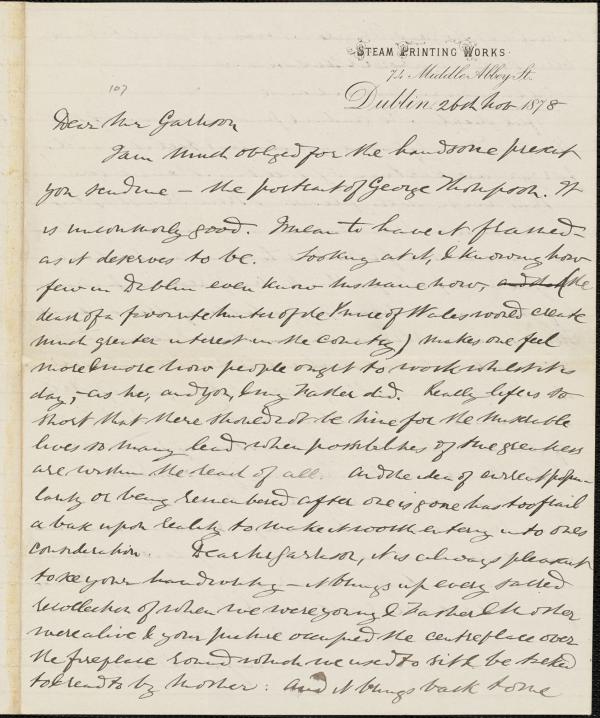 STEAM PRINTING WORKS
74 Middle Abbey St.
Dublin 26th Nov 1878
107
Dear Mr Garrison
I am much obliged for the handsome present
you send me — the portrait of George Thompson. It
is uncommonly good. I mean to have it framed —
as it deserves to be. Looking at it, & knowing how
few in Dublin even know his name now, and the (the
death of a favourite hunter of the Prince of Wales would create
much greater interest in the country) makes one feel
more & more how people ought to work whilst it is
day, — as he, and you, & my Father did. Really life is so
short that there should not be time for the miserable
lives so many lead when possibilities of true greatness
are within the reach of all. And the idea of current popu-
larity or being remembered after one is gone has too frail
a basis upon reality to make it worth entering into ones
consideration. Dear Mr Garrison, it is always pleasant
to see your handwriting — it brings up every sacred
recollection of when we were young & Father & Mother
were alive & your picture occupied the centre place over
the fireplace round which we used to sit & be talked
to & read to by Mother: And it brings back to me